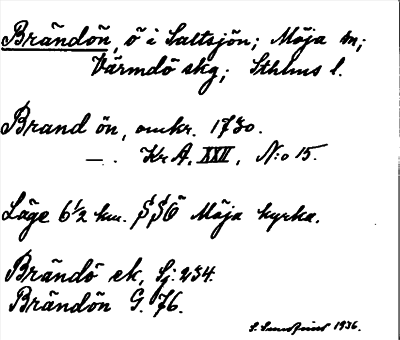 Brändön, ö i Saltsjön; Möja sn;
Värmdö skg; Sthlms l.
Brand ön, omkr. 1730.
—. Kr A, XXII, N:o 15.
Läge 6 1/2 km. SSÖ Möja kyrka.
Brändö ek, Sj: 234.
Brändön G. 76.
1936.